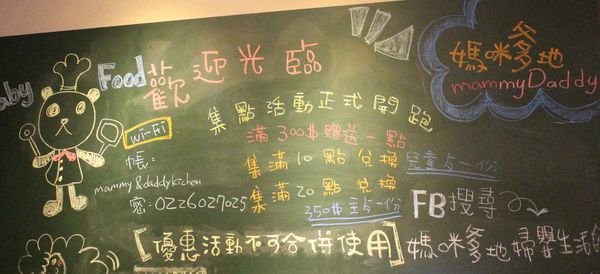 baby
Food
歡迎光臨
媽咪爹地
mammyDaddy
集點活動正式開跑
滿300$贈送一點
集滿10點兌換 兒童占一份
集滿20點兌換
350$主占一份
Wi-Fi
帳:
mammy&daddykichen
密:0226027025
【優惠活動不可合併使用】
FB搜尋
媽咪爹地婦嬰生活館